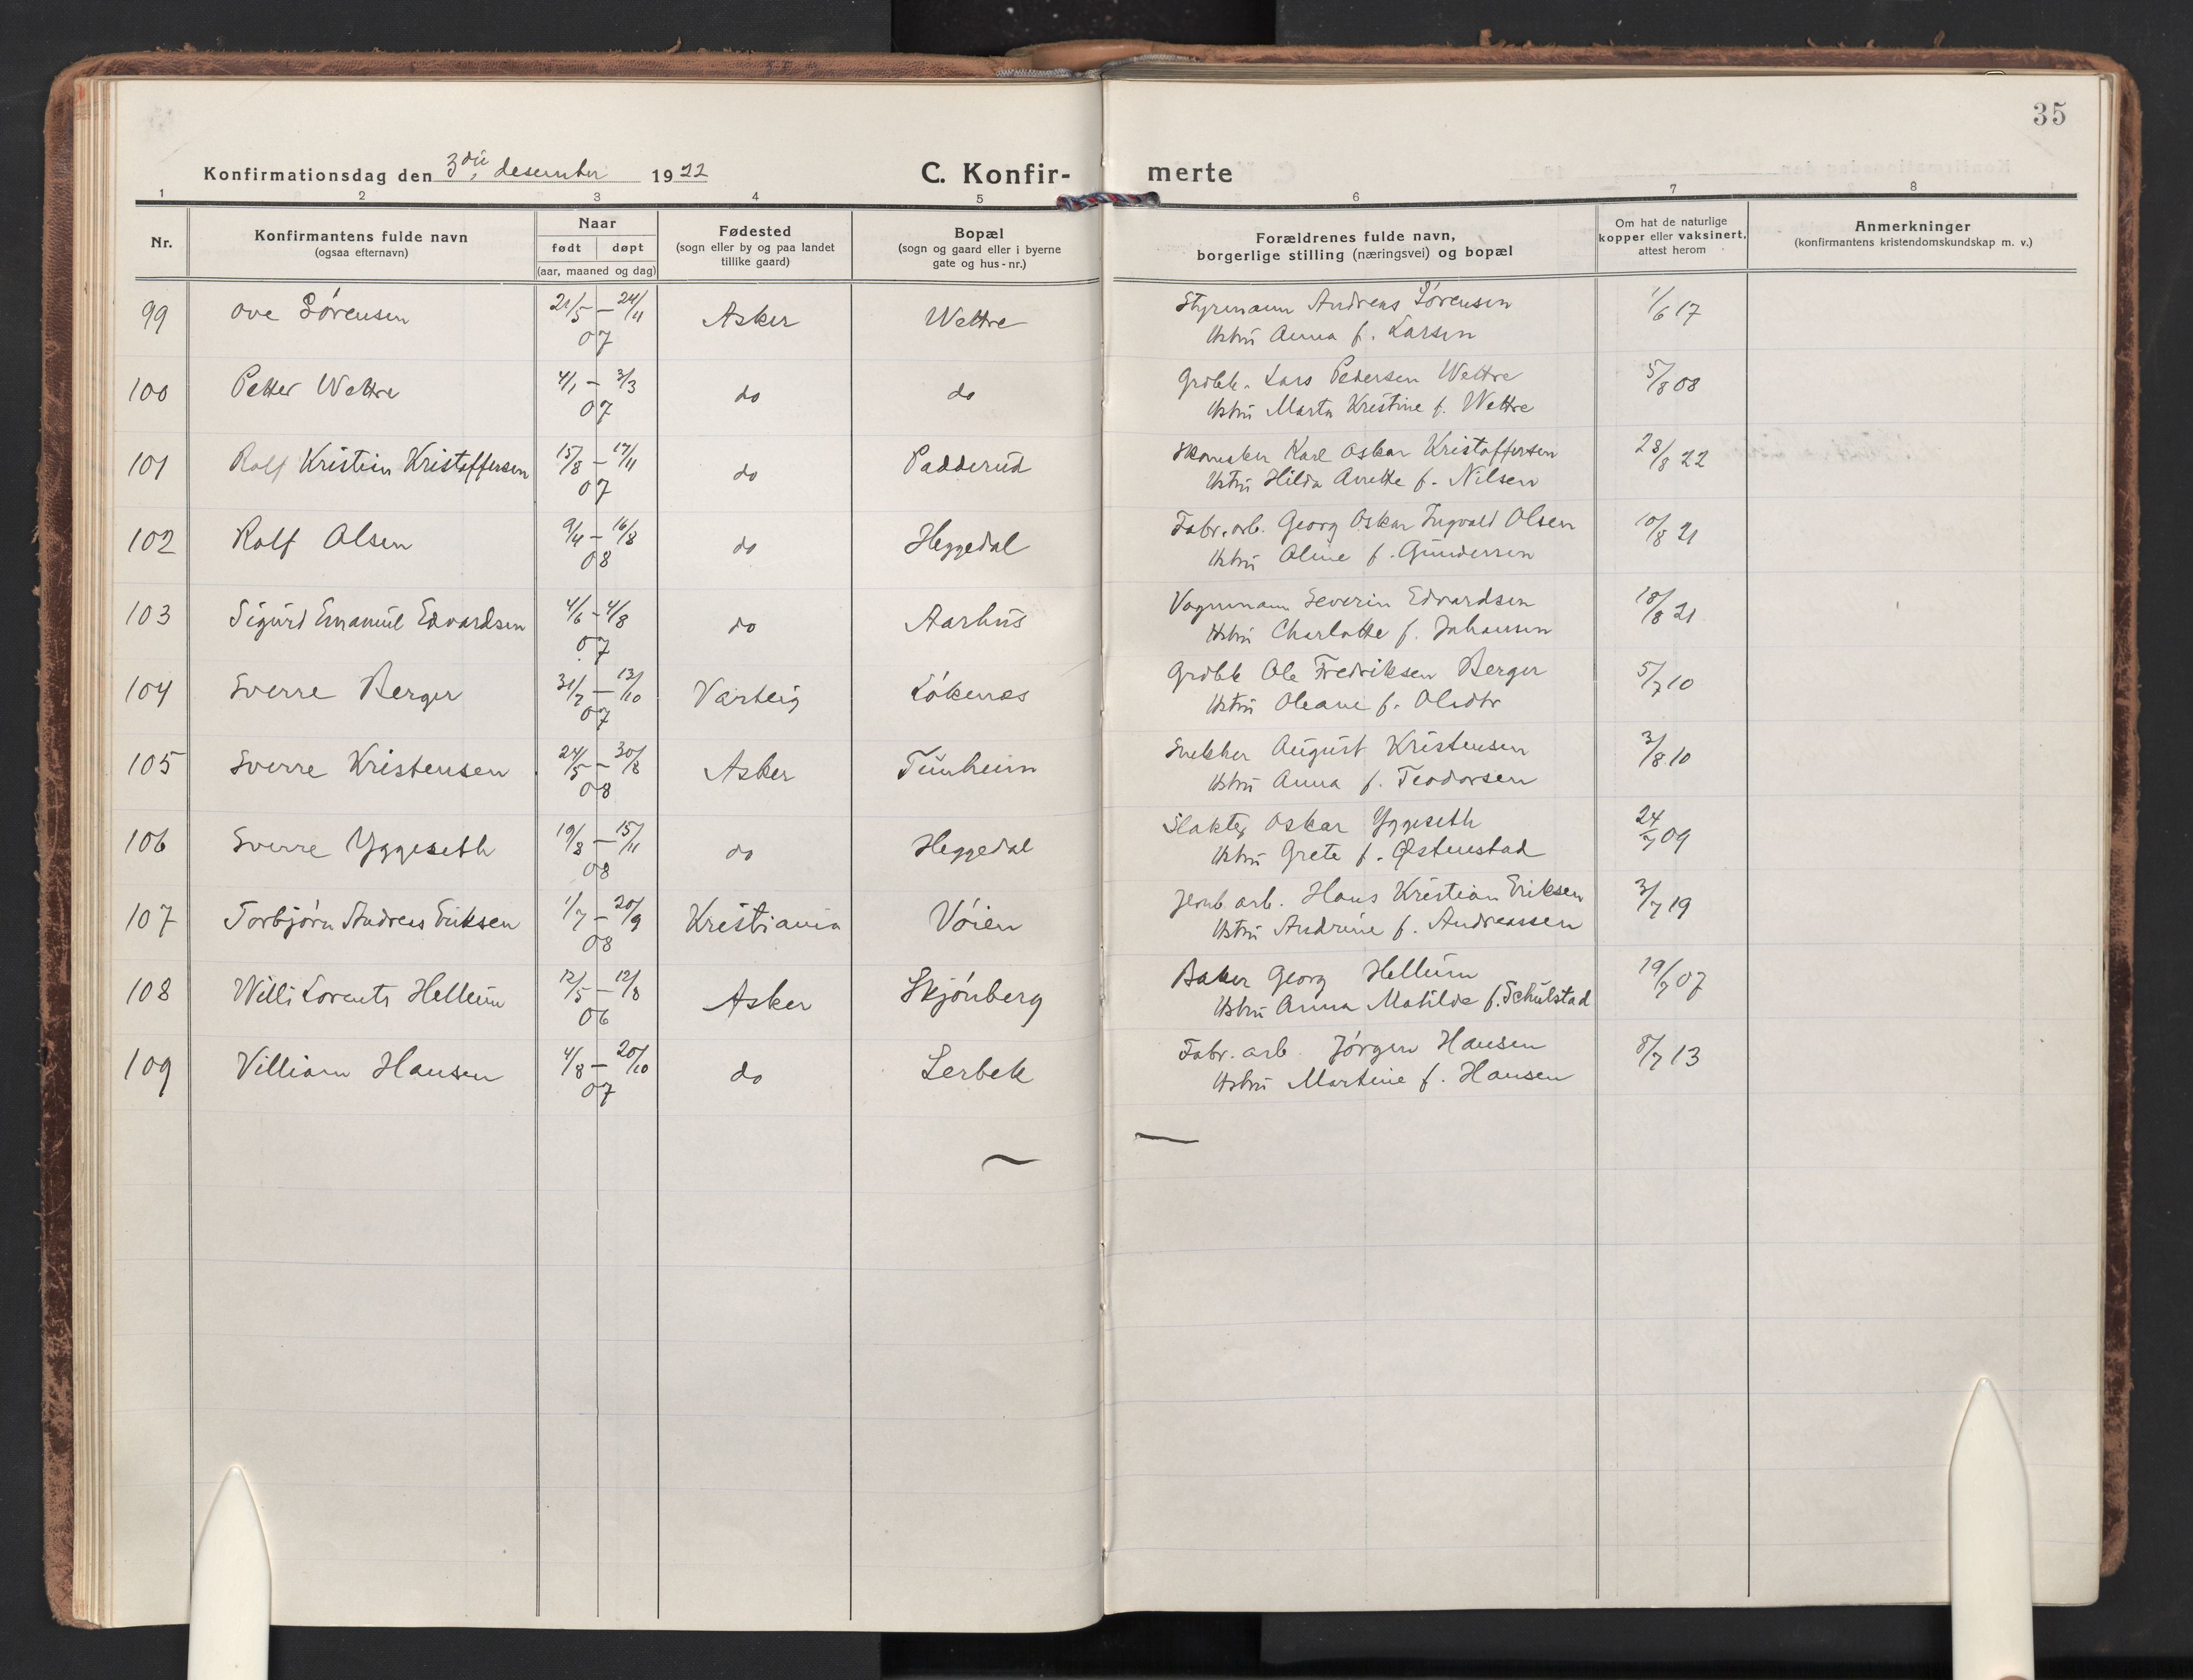 35
Konfirmationsdag den 3die desember 1922 C. Konfir- merte
1 2 3 4 5 6 7 8
Nr.
Konfirmantens fulde navn
(ogsaa efternavn)
Naar
født døpt
(aar, maaned og dag)
Fødested
(sogn eller by og paa landet
tillike gaard)
Bopæl
(sogn og gaard eller i byerne
gate og hus-nr.)
Forældrenes fulde navn,
borgerlige stilling (næringsvei) og bopæl
Om hat de naturlige
kopper eller vaksinert,
attest herom
Anmerkninger
(konfirmantens kristendomskundskap m. v.)
99 Ove Sörensen 21/5 – 24/11 07 Asker Wettre Styrmann Andreas Sörensen 1/6 17
Hstrü Anna f. Larsen
100 Petter Wettre 4/1 – 3/3 07 do do Grdbr. Lars Pedersen Wettre 5/8 08
Hstrü Marta Kristine f. Wettre
101 Rolf Kristian Kristoffersen 15/8 – 17/11 07 do Padderüd Skomaker Karl Oskar Kristoffersen 28/8 22
Hstrü Hilda Anette f. Nilsen
102 Rolf Olsen 9/4 – 16/8 08 do Heggedal Fabr. arb. Georg Oskar Ingvald Olsen 10/8 21
Hstrü Oline f. Gündersen
103 Sigürd Emanüel Edvardsen 4/6 – 4/8 07 do Aarhüs Vognmann Severin Edvardsen 18/8 21
Hstrü Charlotte f. Johansen
104 Sverre Berger 31/7 – 13/10 07 Varteig Lökenes Grdbr Ole Fredriksen Berger 5/7 10
Hstrü Oleane f. Olsdtr
105 Sverre Kristensen 24/5 – 30/8 08 Asker Tünheim Snekker Aügüst Kristensen 3/8 10
Hstrü Anna f. Teodorsen
106 Sverre Yggeseth 19/8 – 15/11 08 do Heggedal Slakter Oskar Yggeseth 24/7 09
Hstrü Grete f. Østenstad
107 Torbjörn Andreas Eriksen 1/7 – 20/9 08 Kristiania Vöien Jernb. arb. Hans Kristian Eriksen 3/7 19
Hstrü Andrine f. Andreassen
108 Willi Lorents Hellüm 12/5 – 12/8 06 Asker Skjönberg Baker Georg Hellüm 19/7 07
Hstrü Anna Matilde f. Schülstad
109 Villiam Hansen 4/8 – 20/10 07 do Lerbek Fabr. arb. Jörgen Hansen 8/7 13
Hstrü Martine f. Hansen